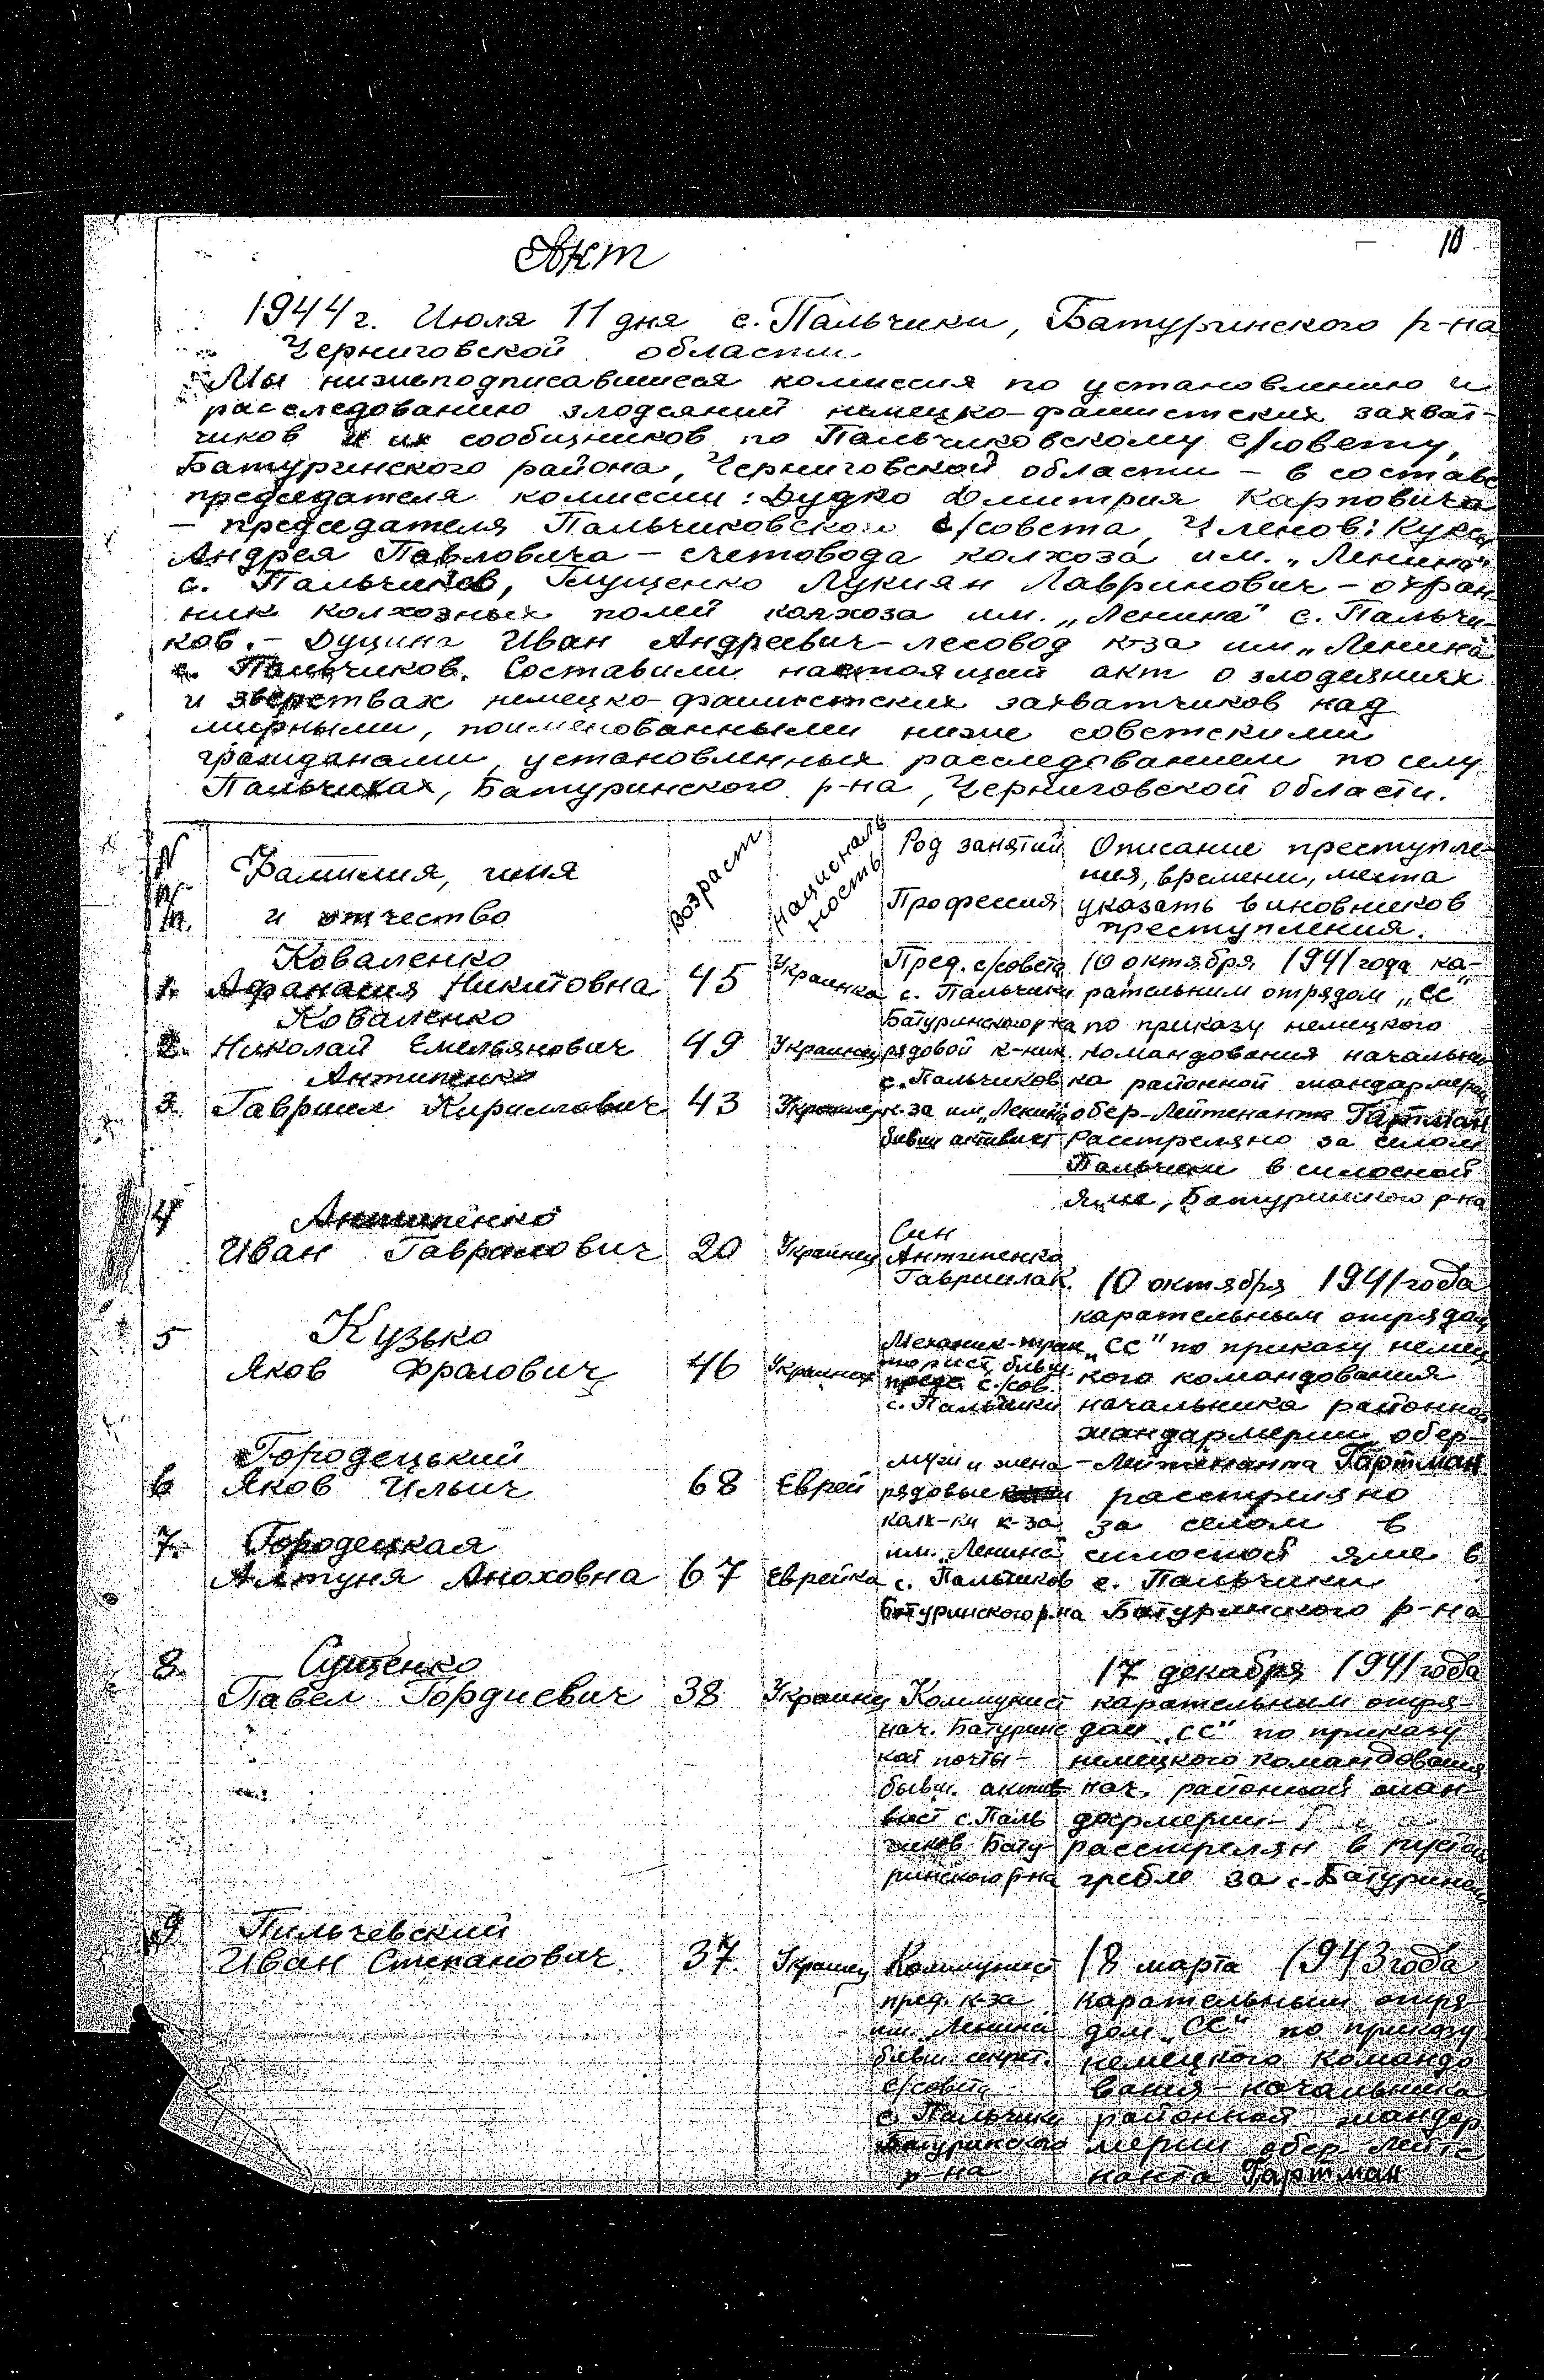 10
Акт
1944 г. Июля 11 дня с. Пальчики, Батуринского р-на
Черниговской области
Мы нижеподписавшиеся комиссия по установлению и
расследованию злодеяний немецко-фашистских захват-
чиков и их сообщников по Пальчиковскому с/совету,
Батуринского района, Черниговской области – в составе
председателя комиссии: Дудко Дмитрия Карповича
– председателя Пальчиковского с/совета, Членов: Куксы
Андрея Павловича – счетовода колхоза им. „Ленина"
с. Пальчиков, Глущенко Лукиян Лавринович – охран-
ник колхозных полей колхоза им. „Ленина" с. Пальчи-
ков. – Иван Андреевич – лесовод к-за им „Ленина"
с. Пальчиков. Составили настоящий акт о злодеяниях
и зверствах немецко-фашистских захватчиков над
мирными, поименованными ниже советскими
гражданами, установленных расследованием по селу
Пальчиках, Батуринского р-на, Черниговской области.
N п/п.
Фамилия, имя
и отчество
Возраст
Националь
ность
Род занятий
Профессия
Описание преступле-
ния, времени, места
указать виновников
преступления.
1. Коваленко
Афанасия Никитовна 45 Украинка
Пред. с/совета
с. Пальчики
Батуринского р-на
2. Коваленко
Николай Емельянович 49 Украинец
рядовой к-ник
с. Пальчиков
3. Антипенко
Гавриил Кирилович 43 Украинец
к-за им „Ленина
бывш активист
10 октября 1941 года ка-
рательним отрядом „СС"
по приказу немецкого
командования начальни
ка районной жандармерии
обер-Лейтенанта Гартман
Расстреляно за селом
Пальчики в силосной
яме, Батуринского р-на
4 Антипенко
Иван Гаврилович 20 Украинец
Син
Антипенко
Гавриила К.
5 Кузько
Яков Фролович 46 Украинец
Механик-трак
торист бывш.
пред. с/сов.
с. Пальчики
6 Городецький
Яков Ильич 68 Еврей
7. Городецкая
Алтуня Аноховна 67 Еврейка
муж и жена
рядовые
колх-ки к-за
им. „Ленина
с. Пальчиков
Батуринского р-на
10 октября 1941 года
карательным отрядом
„СС" по приказу немец
кого командования
начальника районной
жандармерии обер-
-Лейтенанта Гартман
расстреляно
за селом в
силосной яме в
с. Пальчики
Батуринского р-на
8. Сущенко
Павел Гордиевич 38 Украинец
Коммунист
нач. Батуринс
кой почты –
бывш. акти-
вист с. Паль
чиков Бату-
ринского р-на
17 декабря 1941 года
карательным отря-
дом „СС" по приказу
немецкого командования
нач. районной жан-
дармерии –
расстрелян в
гребле за с. Батурином
9 Пильчевский
Иван Степанович 37. Украинец
Коммунист
пред. к-за
им. Ленина
бывш. секрет.
с/совета
с. Пальчики
Батуринского
р-на
18 марта 1943 года
карательным отря-
дом „СС" по приказу
немецкого командо
вания – начальника
районной жандар
мерии обер-Лейте
нанта Гартман